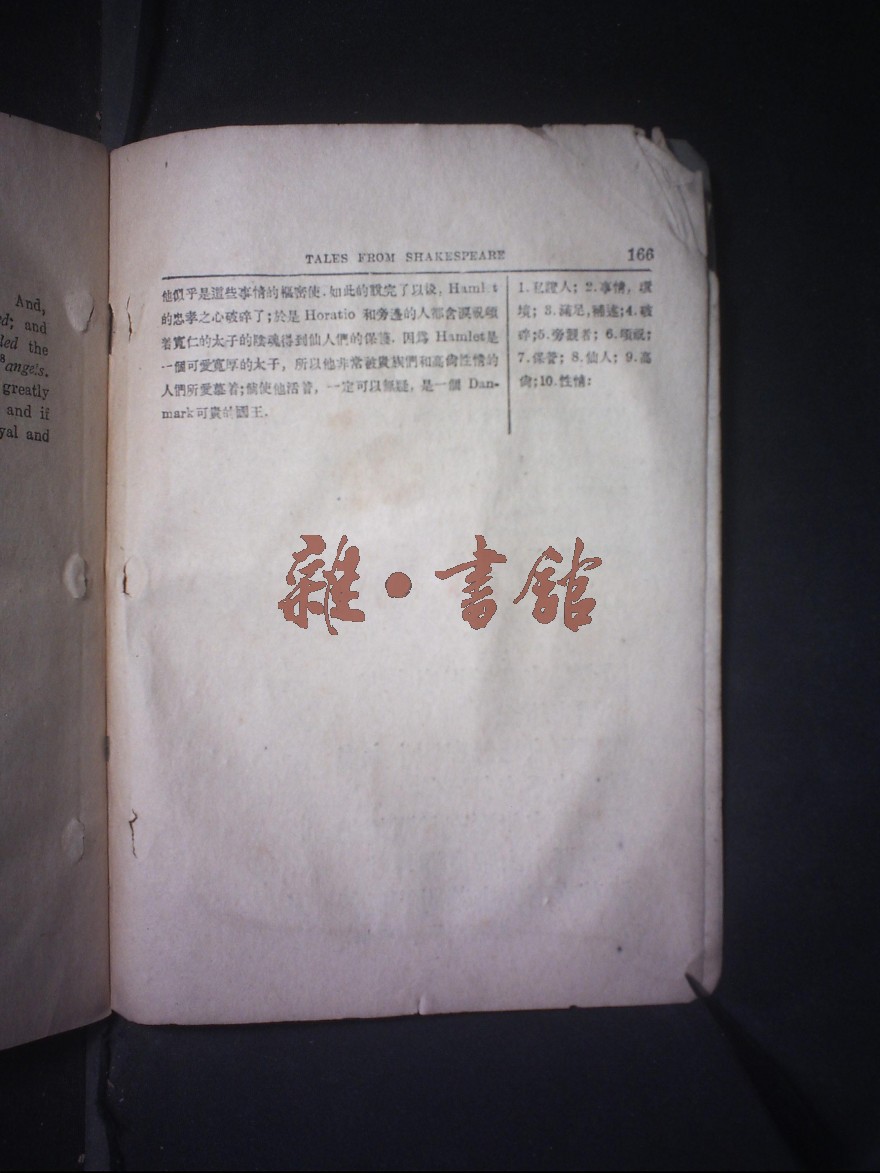 And,
ed; and
ded the
8 angels.
greatly
and if
yal and
TALES FROM SHAKESPEARE 166
他似乎是這些事情的樞密使.如此的說完了以後, Hamlet
的忠孝之心破碎了;於是 Horatio 和旁邊的人都含淚祝頌
著寬仁的太子的陰魂得到仙人們的保護. 因爲 Hamlet是
一個可愛寬厚的太子, 所以他非常被貴族們和高尙性情的
人們所愛慕着;倘使他活着, 一定可以無疑, 是一個 Dan-
mark可貴的國王.
1.私證人; 2.事情,環
境; 3.滿足,補述;4.破
碎;5.旁觀者; 6.頌祝;
7.保管; 8.仙人; 9.高
尙;10.性情:
雜·書館